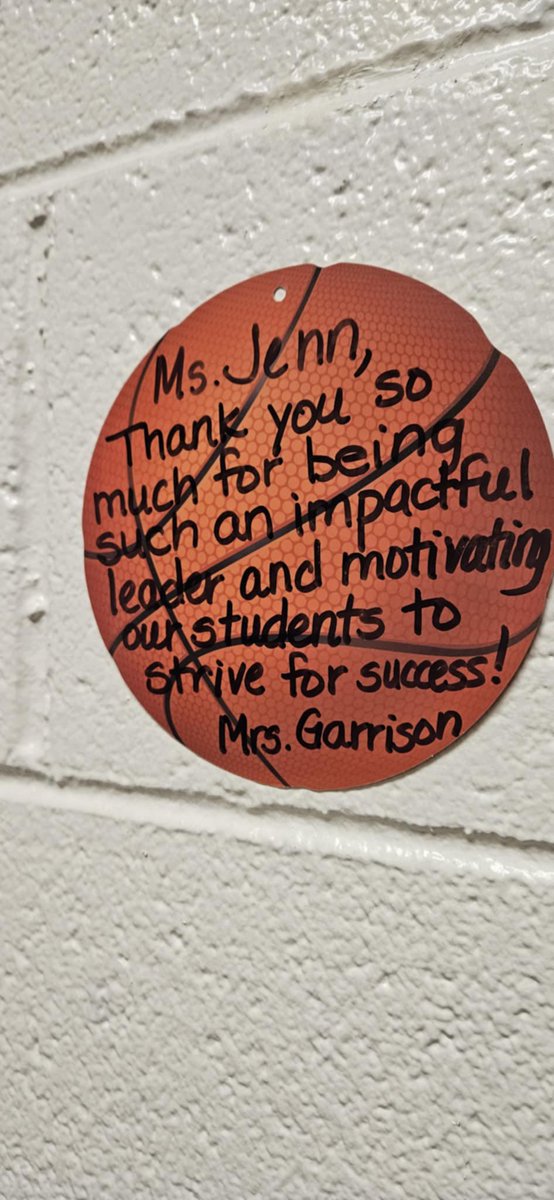 Ms. Jenn,
Thank you so
much for being
such an impactful
leader and motivating
our students to
strive for success!
Mrs. Garrison